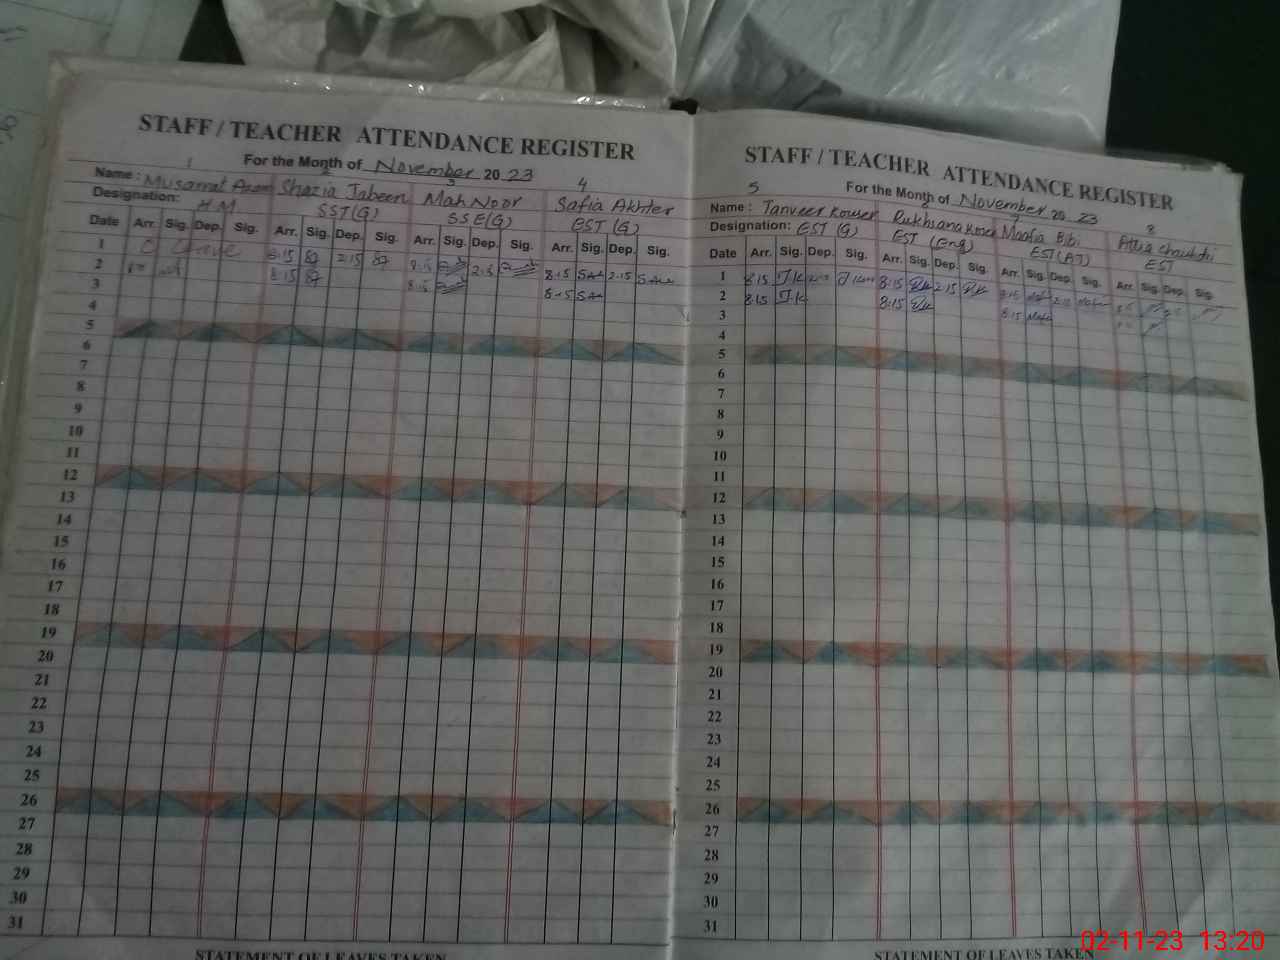 STAFF / TEACHER ATTENDANCE REGISTER
For the Month of November 20 23
1 2 3 4
Name : Musarrat Azam Shazia Jabeen Mah Noor Safia Akhter
Designation: H.M SST(G) SSE(G) EST (G)
Date Arr. Sig. Dep. Sig. Arr. Sig. Dep. Sig. Arr. Sig. Dep. Sig. Arr. Sig. Dep. Sig.
1 C Leave 8.15 2.15 8.15 2.15 8.15 2.15
2 8.15 8.15 8.15
3
5
6
7
8
9
10
11
12
13
14
15
16
17
18
19
20
21
22
23
24
25
26
27
28
29
30
31
STATEMENT OF LEAVES TAKEN
STAFF / TEACHER ATTENDANCE REGISTER
For the Month of November 20 23
5 7 8
Name : Tanveer Kowser Rukhsana Kosar Maafia Bibi Attia Chaudhri
Designation: EST (G) EST (Eng) EST(AT) EST
Date Arr. Sig. Dep. Sig. Arr. Sig. Dep. Sig. Arr. Sig. Dep. Sig. Arr. Sig. Dep. Sig.
1 8.15 T.K 8.15 2.15 8.15
2 8.15 T.K 8.15 8.15
3
4
5
6
7
8
9
10
11
12
13
14
15
16
17
18
19
20
21
22
23
24
25
26
27
28
29
30
31
STATEMENT OF LEAVES TAKEN
02-11-23 13:20